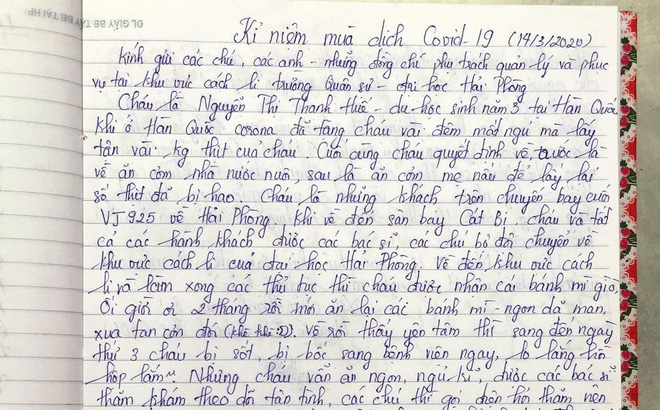 ĐL GIẤY BB TÂY BB TẢI HP
Kỉ niệm mùa dịch Covid-19 (14/3/2020)
Kính gửi các chú, các anh - những đồng chí phụ trách quản lý và phục
vụ tại khu vực cách li trường Quân sự - đại học Hải Phòng
Cháu là Nguyễn Thị Thanh Huế - du học sinh năm 3 tại Hàn Quốc
khi ở Hàn Quốc corona đã tặng cháu vài đêm mất ngủ mà lấy
tận vài kg thịt của cháu. Cuối cùng cháu quyết định về, trước là
về ăn cơm nhà nước nuôi, sau là ăn cơm mẹ nấu để lấy lại
số thịt đã bị hao. Cháu là những khách trên chuyến bay cuối
VJ925 về Hải Phòng. Khi về đến sân bay Cát Bi, cháu và tất
cả các hành khách được các bác sĩ, các chú bộ đội chuyển về
khu vực cách li của đại học Hải Phòng. Về đến khu vực cách
li và làm xong các thủ tục thì cháu được nhận cái bánh mì giò
Ôi giời ơi 2 tháng rồi mới ăn lại các bánh mì-ngon dã man,
xua tan cơn đói (khè khè :)). Về rồi thấy yên tâm thì sang đến ngày
thứ 3 cháu bị sốt, bị bốc sang bệnh viện ngay, lo lắng hồi
hộp lắm... Nhưng cháu vẫn ăn ngon, ngủ kĩ, được các bác sĩ
thăm khám theo dõi tận tình, các chú thì gọi điện hỏi thăm nên